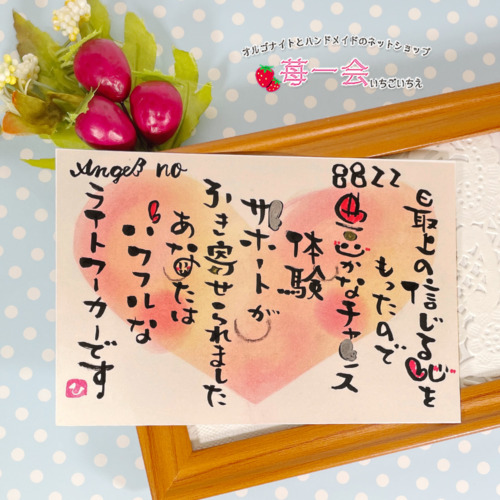 オルゴナイトとハンドメイドのネットショップ
苺一会
いちごいちえ
Angel no
8822
最上の信じる心を
もったので
豊かなチャンス
体験
サポートが
引き寄せられました
あなたは
パワフルな
ライトワーカーです
ひ